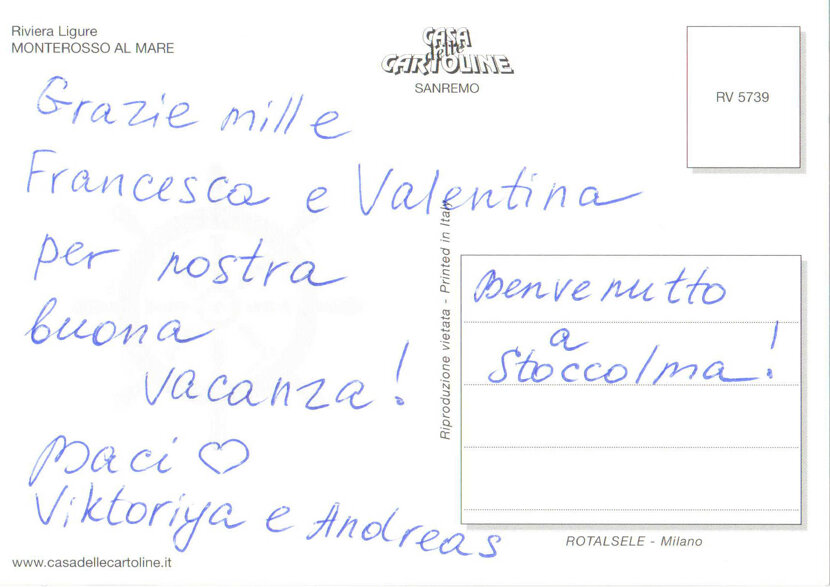 Riviera Ligure
MONTEROSSO AL MARE
CASA
delle
CARTOLINE
SANREMO
RV 5739
Grazie mille
Francesca e Valentina
per nostra
buona
vacanza!
Baci ♡
Viktoriya e Andreas
Benvenutto
a
Stoccolma!
Riproduzione vietata - Printed in Italy
ROTALSELE - Milano
www.casadellecartoline.it